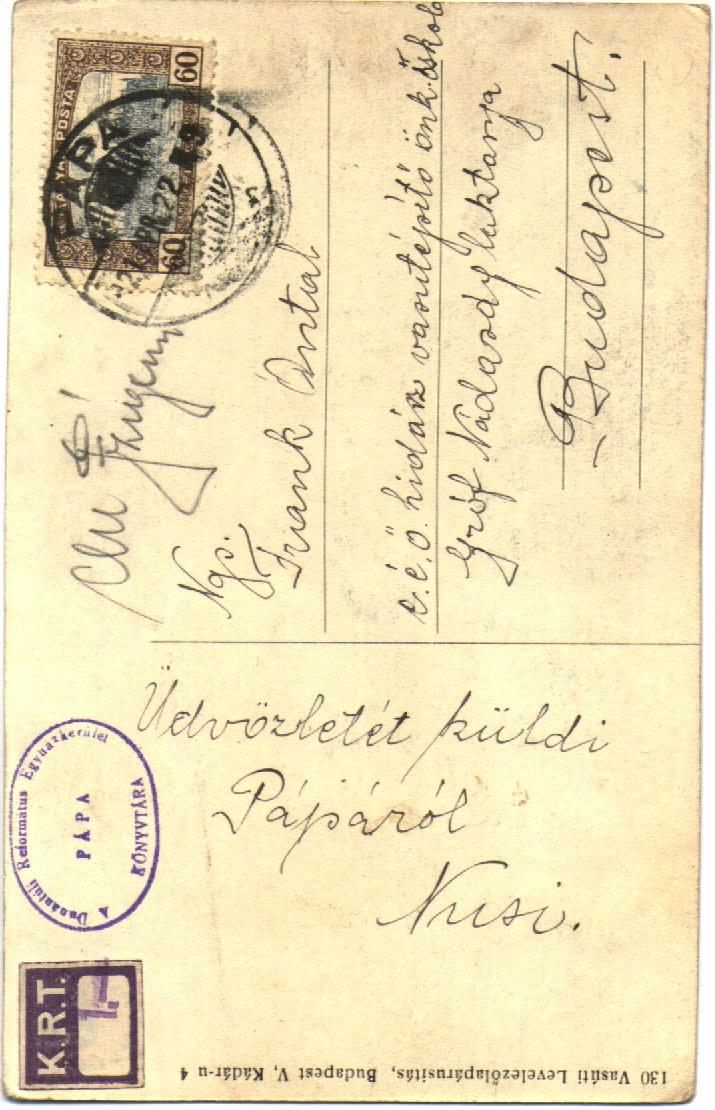 K.R.T.
1.–
A Dunántúli Református Egyházkerület
PÁPA
KÖNYVTÁRA
Üdvözletét küldi
Pápáról
Nusi.
130 Vasúti Levelezőlapárusítás, Budapest V, Kádár-u 4
MAGYAR POSTA
60
60
PÁPA
Ngs.
Frank Antal
c. é. ő. hidász vasutépítő önk. iskola
Gróf Nádasdy laktanya
Budapest.